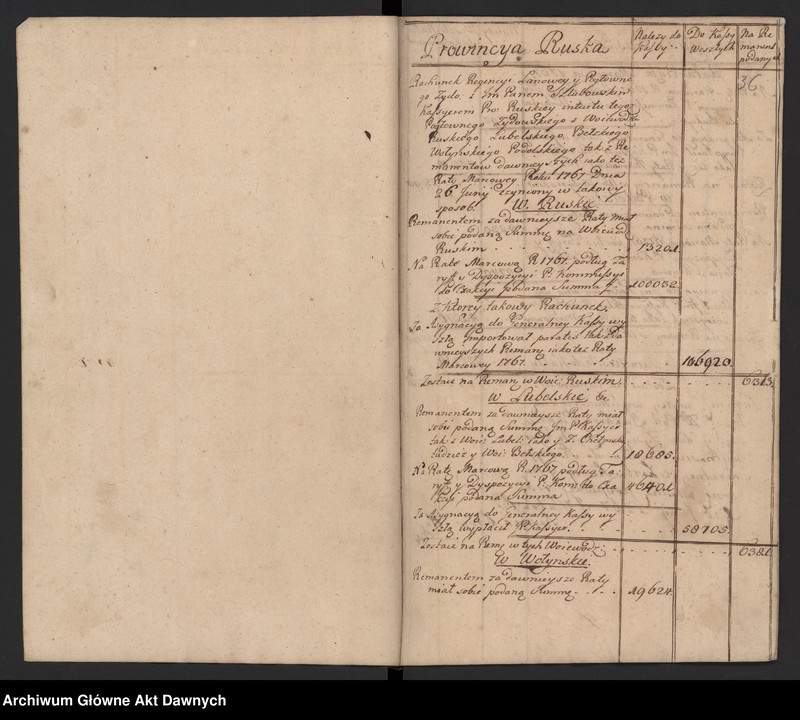 Prowincya Ruska
Należy do Kassy
Do Kassy Weszłych
Na Remanent podanych
36
Rachunek Regencyi Łanowey y Pogłowne
go Żydo: z Jm Panem
Kassyerem Pro Ruskiey intuitu tegoż
Pogłownego Żydowskiego z Woiewodz:
Ruskiego Lubelskiego, Bełzkiego
Wołynskiego Podolskiego tak z Re
manentow dawnieyszych iako też
Raty Marcowey Roku 1767 Dnia
26 Junij czyniony w takowy
sposob. W. Ruskie
Remanentem za dawnieysze Raty miał
sobie podaną Summę na Woiewodz:
Ruskim 13201.
Na Ratę Marcową R. 1767. podług Ta
ryff y Dyspozycyi P. Kommissyi
do Exakcyi podana Summa f: 100032.
Z ktorey takowy Rachunek.
Za Asygnacyą do Generalney Kassy wy
szłą Importował paratis tak z Da
wnieyszych Reman: iako też Raty
Marcowey 1767. 106920.
Zostaie na Reman: w Woie: Ruskim. 6313.
w Lubelskie &c
Remanentem za dawnieysze Raty miał
sobie podaną Summę Jm P. Kassyer
tak z Woie: Lubel: iako y Z.
tudzież y Woi: Bełskiego. 18685.
Na Ratę Marcową R. 1767 podług Ta
ryff y Dyspozycyi P. Kom: do Exa 46401
kcyi podana Summa
Za Asygnacyą do Generalney Kassy wy
szłą wypłacił P. Kassyer. 58705.
Zostaie na Rem: w tych Woiewodz: 6381.
W Wołynskie.
Remanentem za dawnieysze Raty
miał sobie podaną Summę 19624.
Archiwum Główne Akt Dawnych